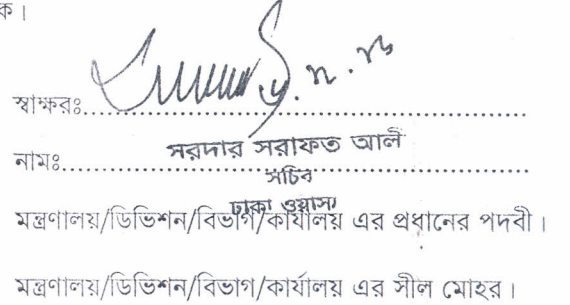 ক।
স্বাক্ষরঃ
নামঃ সরদার সরাফত আলী
সচিব
ঢাকা ওয়াসা
মন্ত্রণালয়/ডিভিশন/বিভাগ/কার্যালয় এর প্রধানের পদবী।
মন্ত্রণালয়/ডিভিশন/বিভাগ/কার্যালয় এর সীল মোহর।